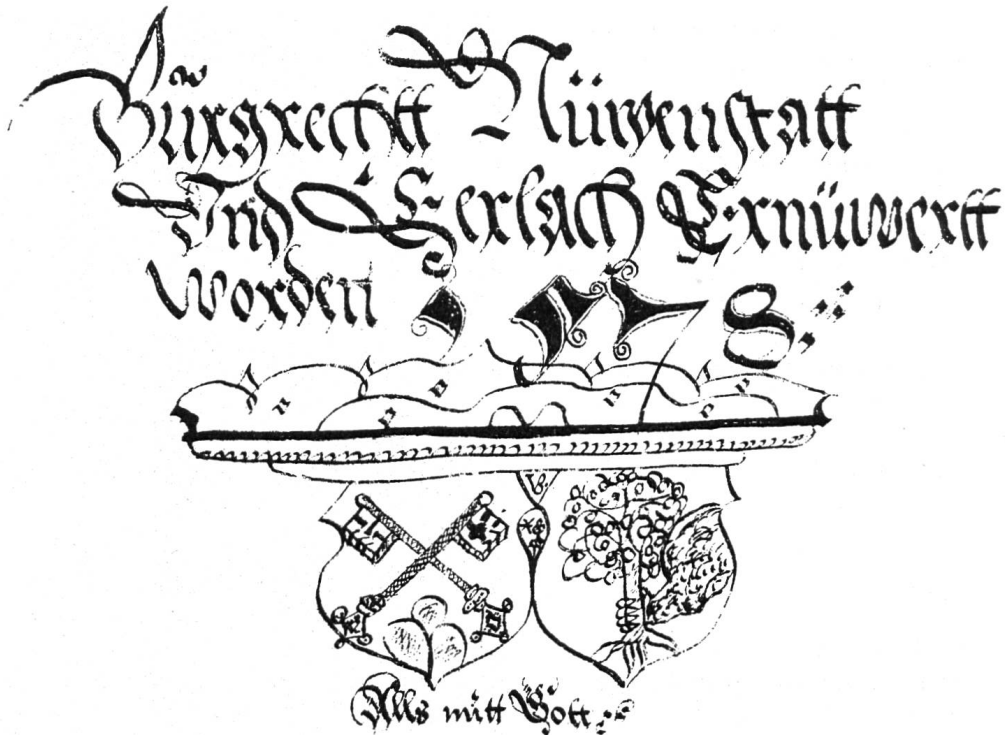 Bürgrechtt Nüwenstatt
Vnd Eerlach Ernüwertt
Worden 1578
Alls mitt Gott